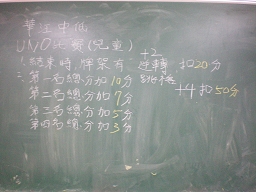 華江中低
UNO比賽(兒童)
1. 結束時,牌架有 +2 逆轉 跳格 扣20分
+4扣50分
二、第一名總分加10分
第二名總分加7分
第三名總分加5分
第四名總分加3分